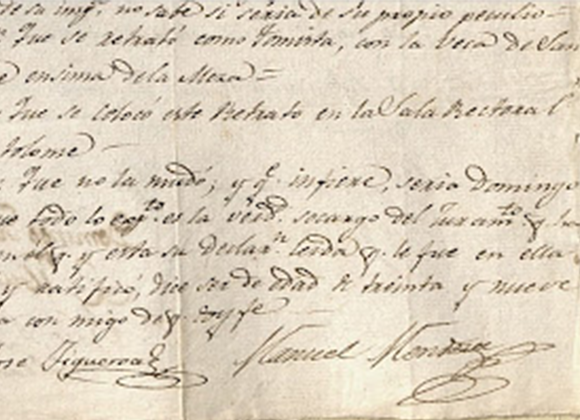 de su impº no sabe si seria de su propio peculio =
Que se retrató como Tomista, con la veca de San
ensima de la Mesa =
Que se colocó este Retrato en la Sala Rectoral
tolome
Que no la mudó; y q.e infiere, seria Domingo
que todo lo exp.to es la verd.d socargo del Juram.to
en el q. y esta su declar.n leida q. le fue en ella
y ratificó, que ser de edad de treinta y nueve
con migo de q. doy fe
Jose Figueroa Manuel Mendoza